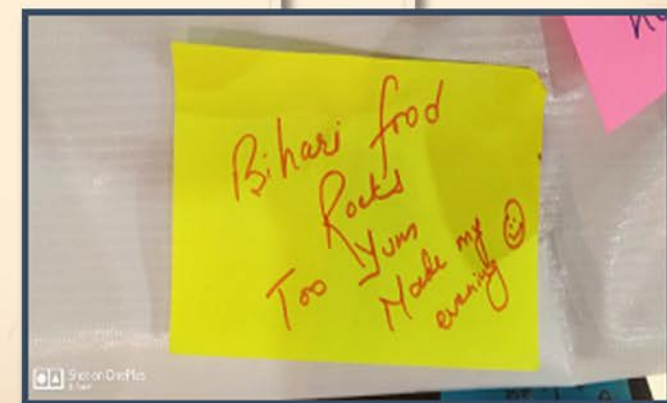 Bihari food
Rocks
Too Yum
Made my
evening ☺
Shot on OnePlus